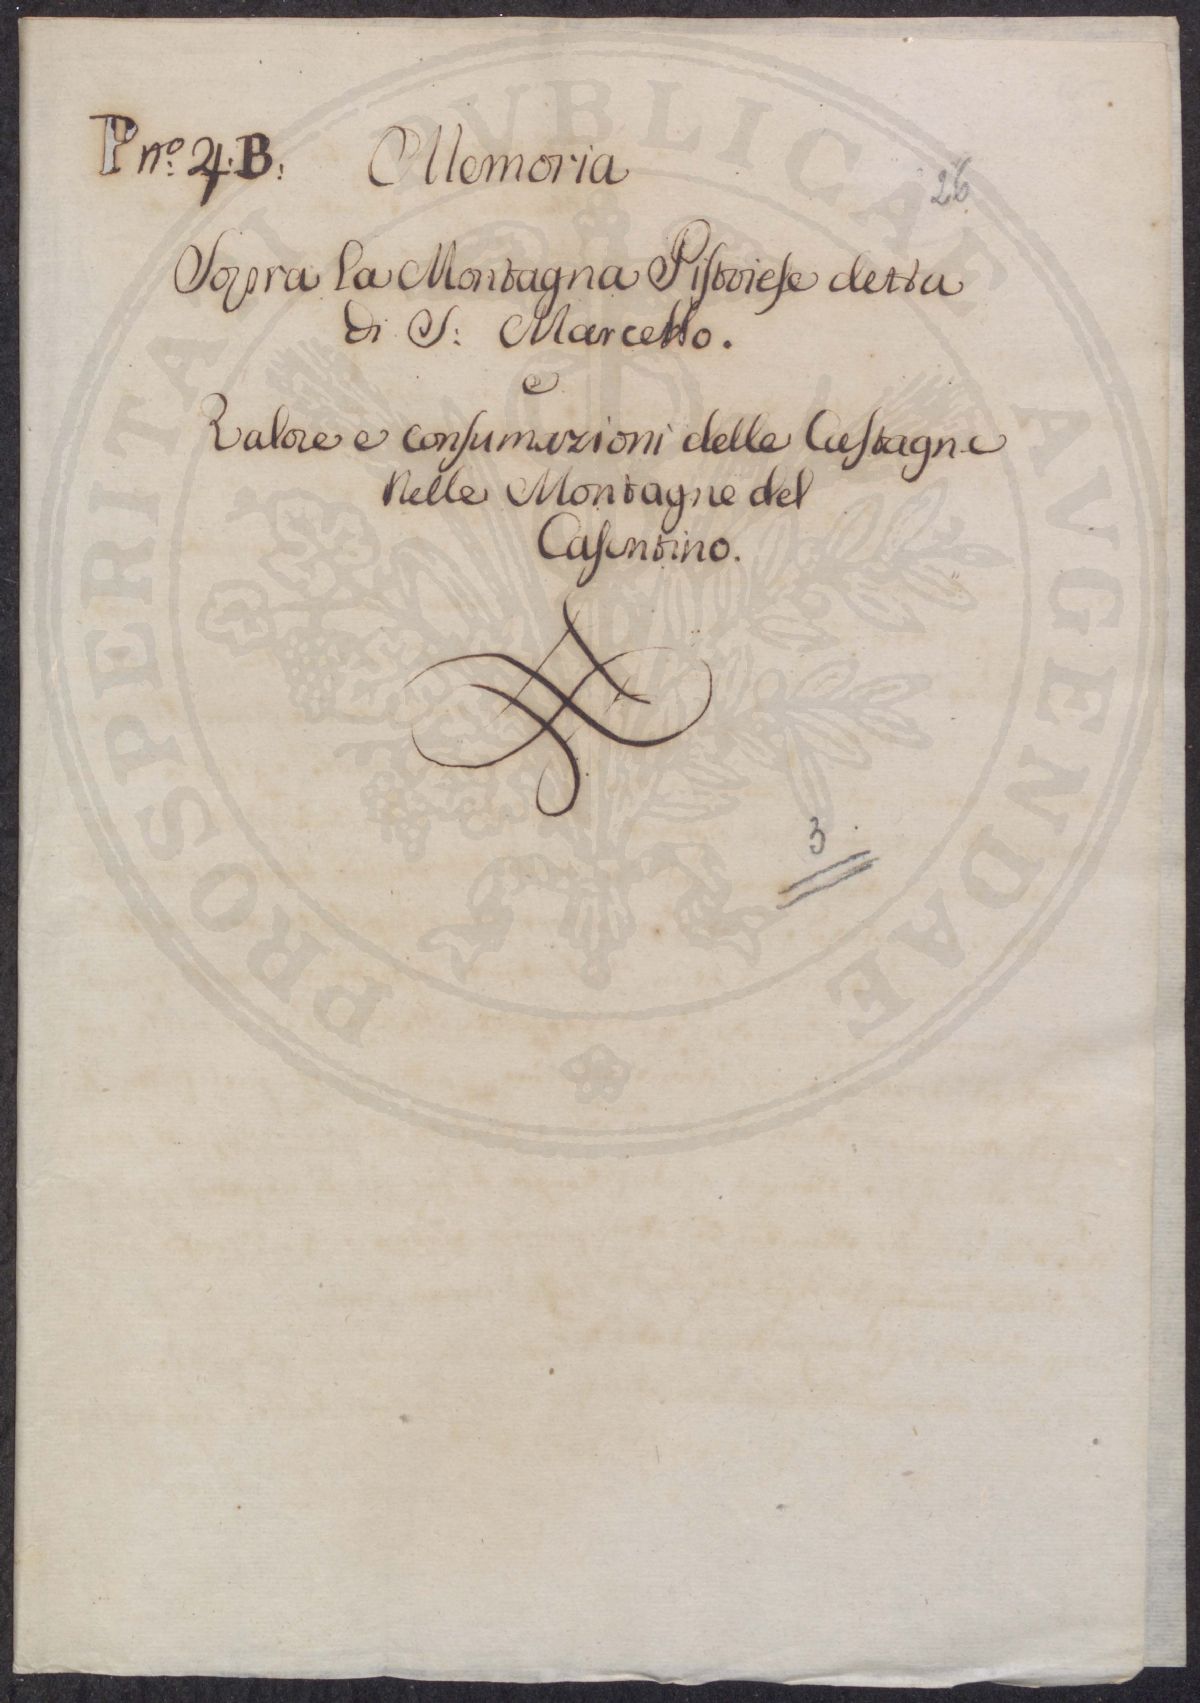 P n.º 4. B. Memoria
26
Sopra la Montagna Pistoiese detta
di S: Marcello.
e
Valore e consumazioni delle Castagne
Nelle Montagne del
Casentino.
3
PROSPERITATI PVBLICAE AVGENDAE